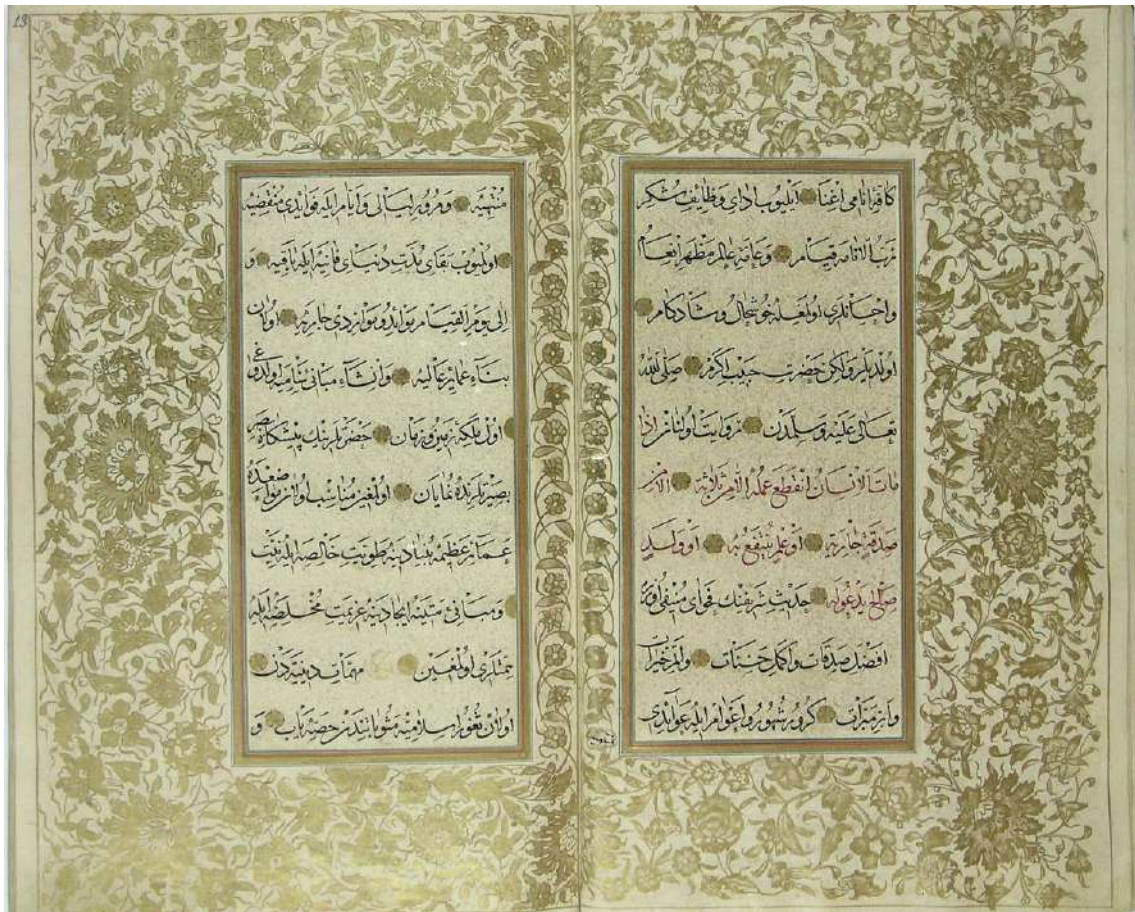 كافهٔ انامی اغنا ايليوب ادای وظائف شكر
رب الانامه قيام وعامهٔ عالم مظهر انعام
واحسانلری اولمغله خوشحال وشادكام
اولديلر ولكن حضرت حبيب اكرم صلى الله
تعالى عليه وسلمدن روايت اولنان اذا
مات الانسان انقطع عمله الا من ثلاثة الا من
صدقة جارية او علم ينتفع به او ولد
صالح يدعو له حديث شريفنك فحوای منيفی اوزره
افضل صدقات واكمل حسنات والذ خيرات
وابر مبرات كرور شهور واعوام ايله عوائدی
منتهيه ومرور ليالی وايام ايله فوائدی منقضيه
اولميوب بقای مدت دنيای فانيه ايله باقيه و
الى يوم القيام بوائد وبوانزدی جاريه اولان
بناء عماير عاليه وانشاء مبانی شامخه اولدوغی
اول ملكهٔ زمين وزمان حضرتلرينك پيشكاه
بصيرتلرنده نمايان اولمغين مناسب اولان بوقعده
عمائر عظيمه بنيادينه طويت خالصه ايله نيت
ومبانئ متينه ايجادينه عزيمت مخلصه ايله
همتلری اولمغين مهمات دينيه دن
اولان ثغور اسلاميه مثوباتندن حصه ياب و